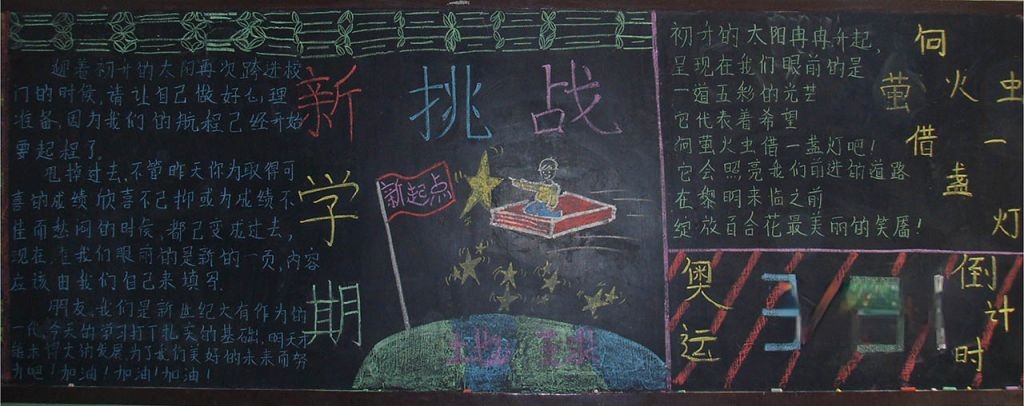 迎着初升的太阳再次跨进校
门的时候,请让自己做好心理
准备,因为我们的航程已经开始
要起程了.
甩掉过去.不管昨天你为取得可
喜的成绩欣喜不已抑或为成绩不
佳而愁闷的时候,都已变成过去,
现在,在我们眼前的是新的一页,内容
应该由我们自己来填写.
朋友,我们是新世纪大有作为的
一代,今天的学习打下扎实的基础,明天才
能来得大的发展,为了我们美好的未来而努
力吧!加油!加油!加油!
新
学
期
挑战
新起点
地球
初升的太阳冉冉升起,
呈现在我们眼前的是
一道五彩的光芒
它代表着希望
向萤火虫借一盏灯吧!
它会照亮我们前进的道路
在黎明来临之前
绽放百合花最美丽的笑靥!
向
萤火虫
借一
盏
灯
奥运
381
倒计时